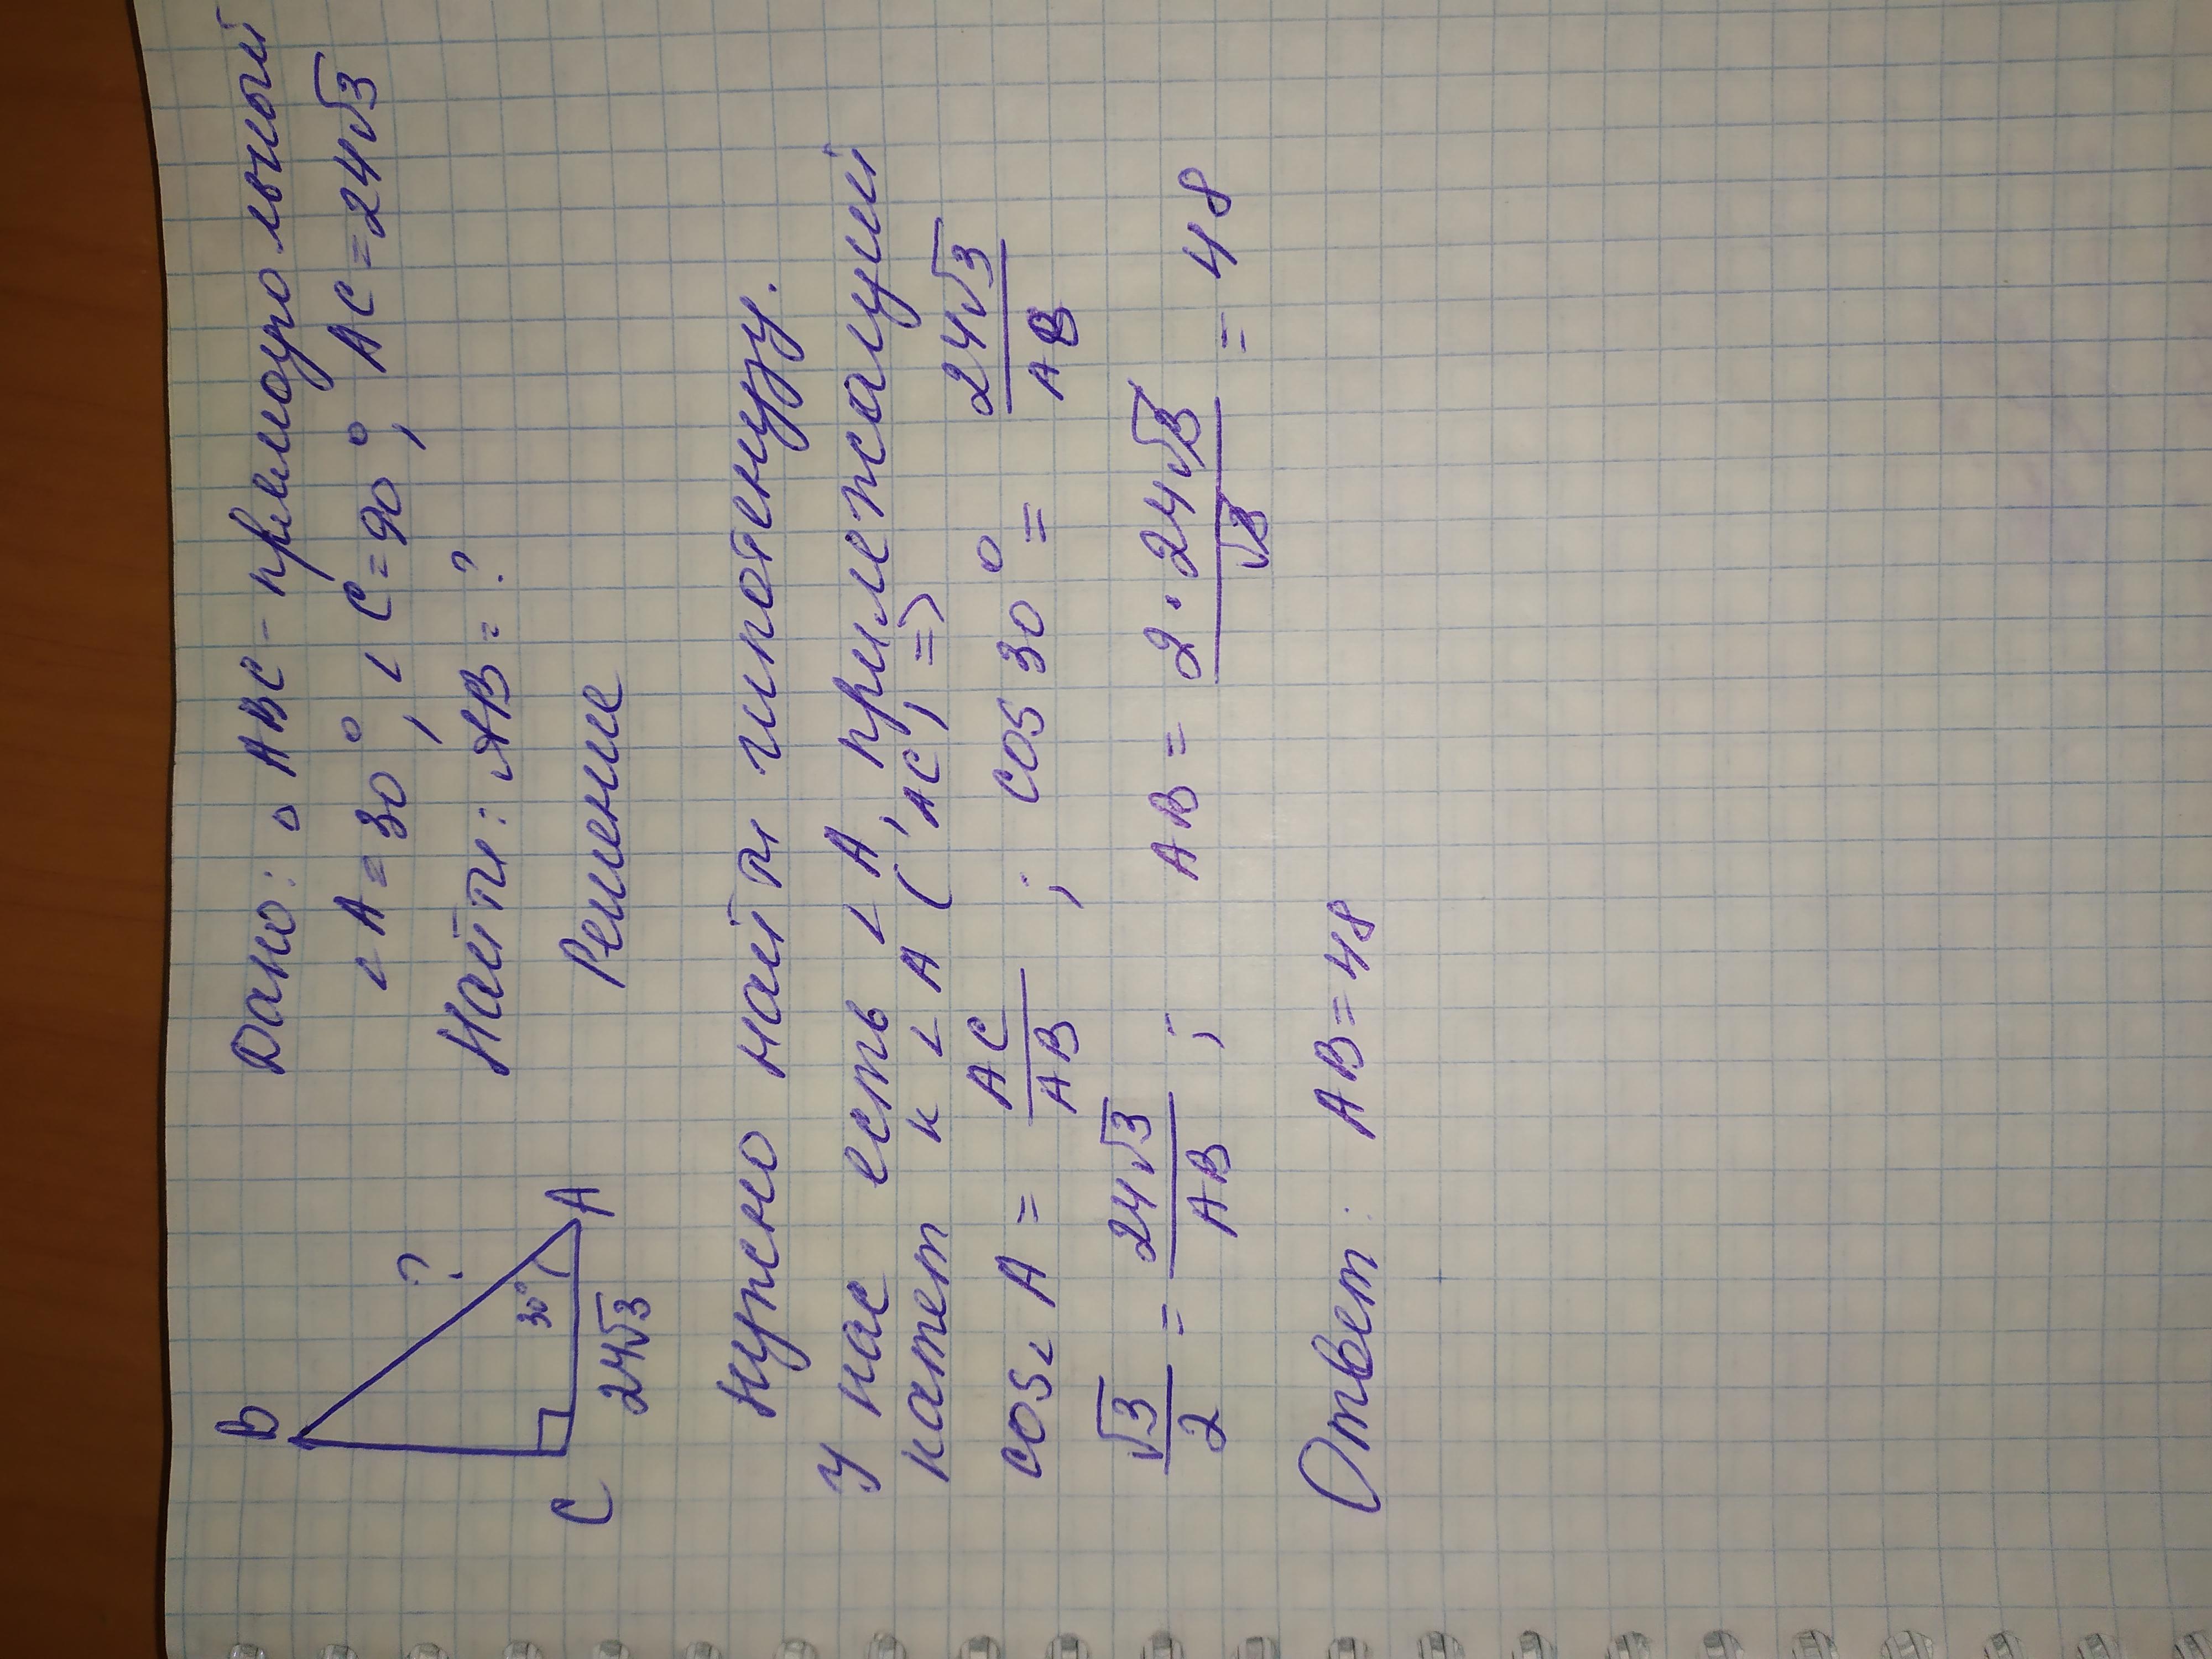 Дано: △ ABC - прямоугольный
∠ A = 30°, ∠ C = 90°, AC = 24√3
Найти: AB = ?
B
?
30°
C
A
24√3
Решение
Нужно найти гипотенузу.
У нас есть ∠ A, прилежащий
катет к ∠ A ('AC), =>
cos∠ A = AC/AB ; cos 30° = 24√3/AB
√3/2 = 24√3/AB ; AB = 2·24√3/√3 = 48
Ответ: AB = 48